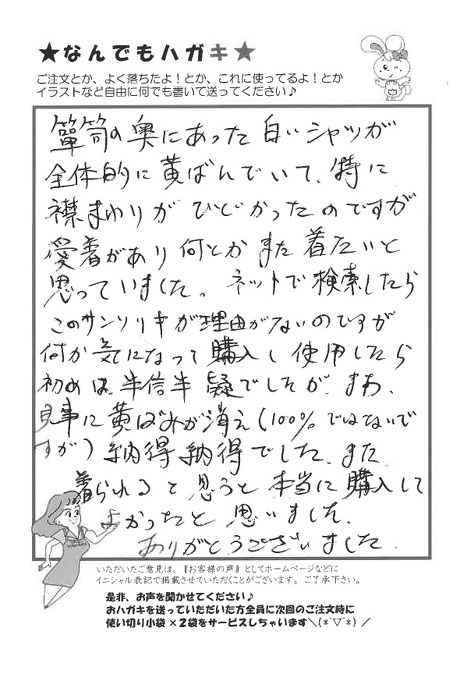 ★なんでもハガキ★
ご注文とか、よく落ちたよ!とか、これに使ってるよ!とか
イラストなど自由に何でも書いて送ってください♪
箪笥の奥にあった白いシャツが
全体的に黄ばんでいて、特に
襟まわりがひどかったのですが
愛着があり何とかまた着たいと
思っていました。ネットで検索したら
このサンソリキが理由がないのですが
何か気になって購入し使用したら
初めは半信半疑でしたが、まあ、
見事に黄ばみが消え(100%ではないで
すが)納得納得でした。また
着られると思うと本当に購入して
よかったと思いました。
ありがとうございました。
いただいたご意見は、『お客様の声』としてホームページなどに
イニシャル表記で掲載させていただくことがございます。ご了承下さい。
是非、お声を聞かせてください♪
おハガキを送っていただいた方全員に次回のご注文時に
使い切り小袋×2袋をサービスしちゃいます＼(*´▽`*)／